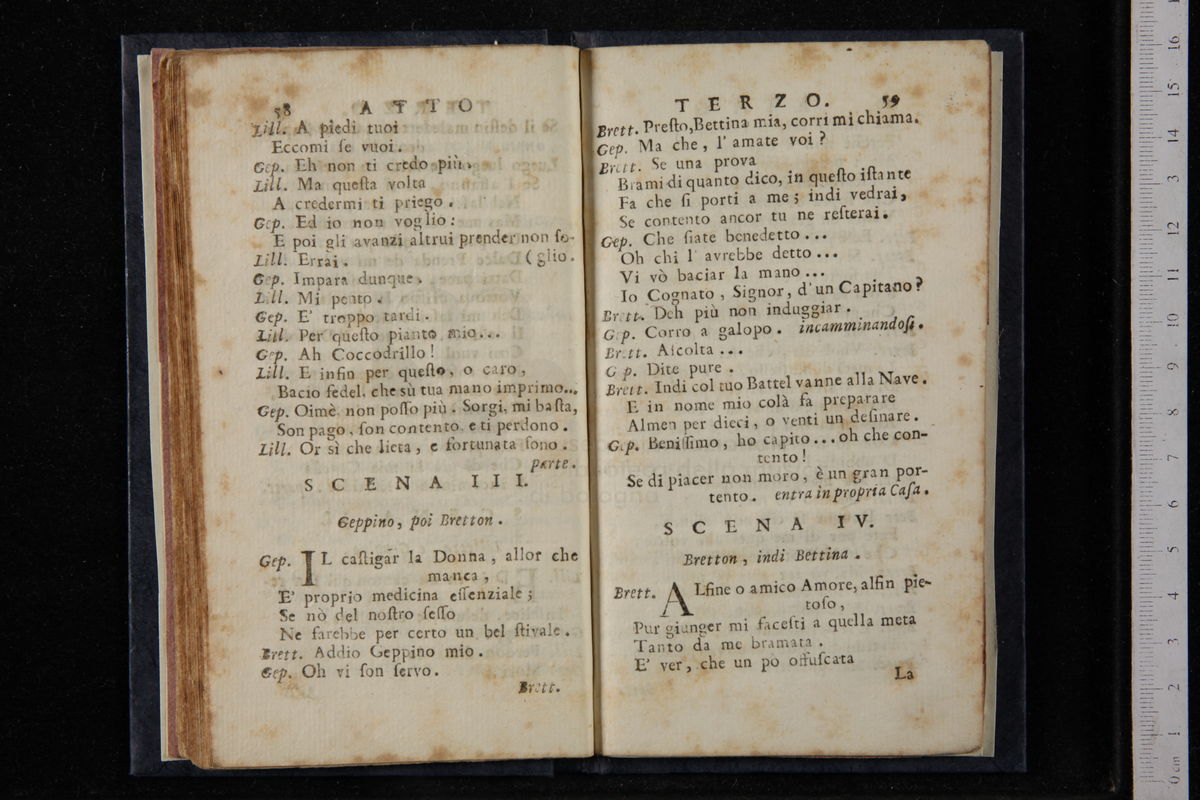 58 ATTO
Lill. A piedi tuoi
Eccomi ſe vuoi.
Gep. Eh non ti credo più.
Lill. Ma queſta volta
A credermi ti priego.
Gep. Ed io non voglio:
E poi gli avanzi altrui prender non ſo-
Lill. Errai. (glio.
Gep. Impara dunque.
Lill. Mi pento.
Gep. E' troppo tardi.
Lill. Per queſto pianto mio...
Gep. Ah Coccodrillo!
Lill. E infin per queſto, o caro,
Bacio fedel, che sù tua mano imprimo...
Gep. Oimè, non poſſo più. Sorgi, mi baſta,
Son pago, ſon contento, e ti perdono.
Lill. Or sì che lieta, e fortunata ſono.
parte.
SCENA III.
Geppino, poi Bretton.
Gep. IL caſtigar la Donna, allor che
manca,
E' proprio medicina eſſenziale;
Se nò del noſtro ſeſſo
Ne farebbe per certo un bel ſtivale.
Brett. Addio Geppino mio.
Gep. Oh vi ſon ſervo.
Brett.
TERZO. 59
Brett. Preſto, Bettina mia, corri mi chiama.
Gep. Ma che, l'amate voi?
Brett. Se una prova
Brami di quanto dico, in queſto iſtante
Fa che ſi porti a me; indi vedrai,
Se contento ancor tu ne reſterai.
Gep. Che ſiate benedetto...
Oh chi l'avrebbe detto...
Vi vò baciar la mano...
Io Cognato, Signor, d'un Capitano?
Brett. Deh più non induggiar.
Gep. Corro a galopo. incamminandoſi.
Brett. Aſcolta...
Gep. Dite pure.
Brett. Indi col tuo Battel vanne alla Nave.
E in nome mio colà fa preparare
Almen per dieci, o venti un deſinare.
Gep. Beniſſimo, ho capito...oh che con-
tento!
Se di piacer non moro, è un gran por-
tento. entra in propria Caſa.
SCENA IV.
Bretton, indi Bettina.
Brett. ALfine o amico Amore, alfin pie-
toſo,
Pur giunger mi faceſti a quella meta
Tanto da me bramata.
E' ver, che un pò offuſcata
La